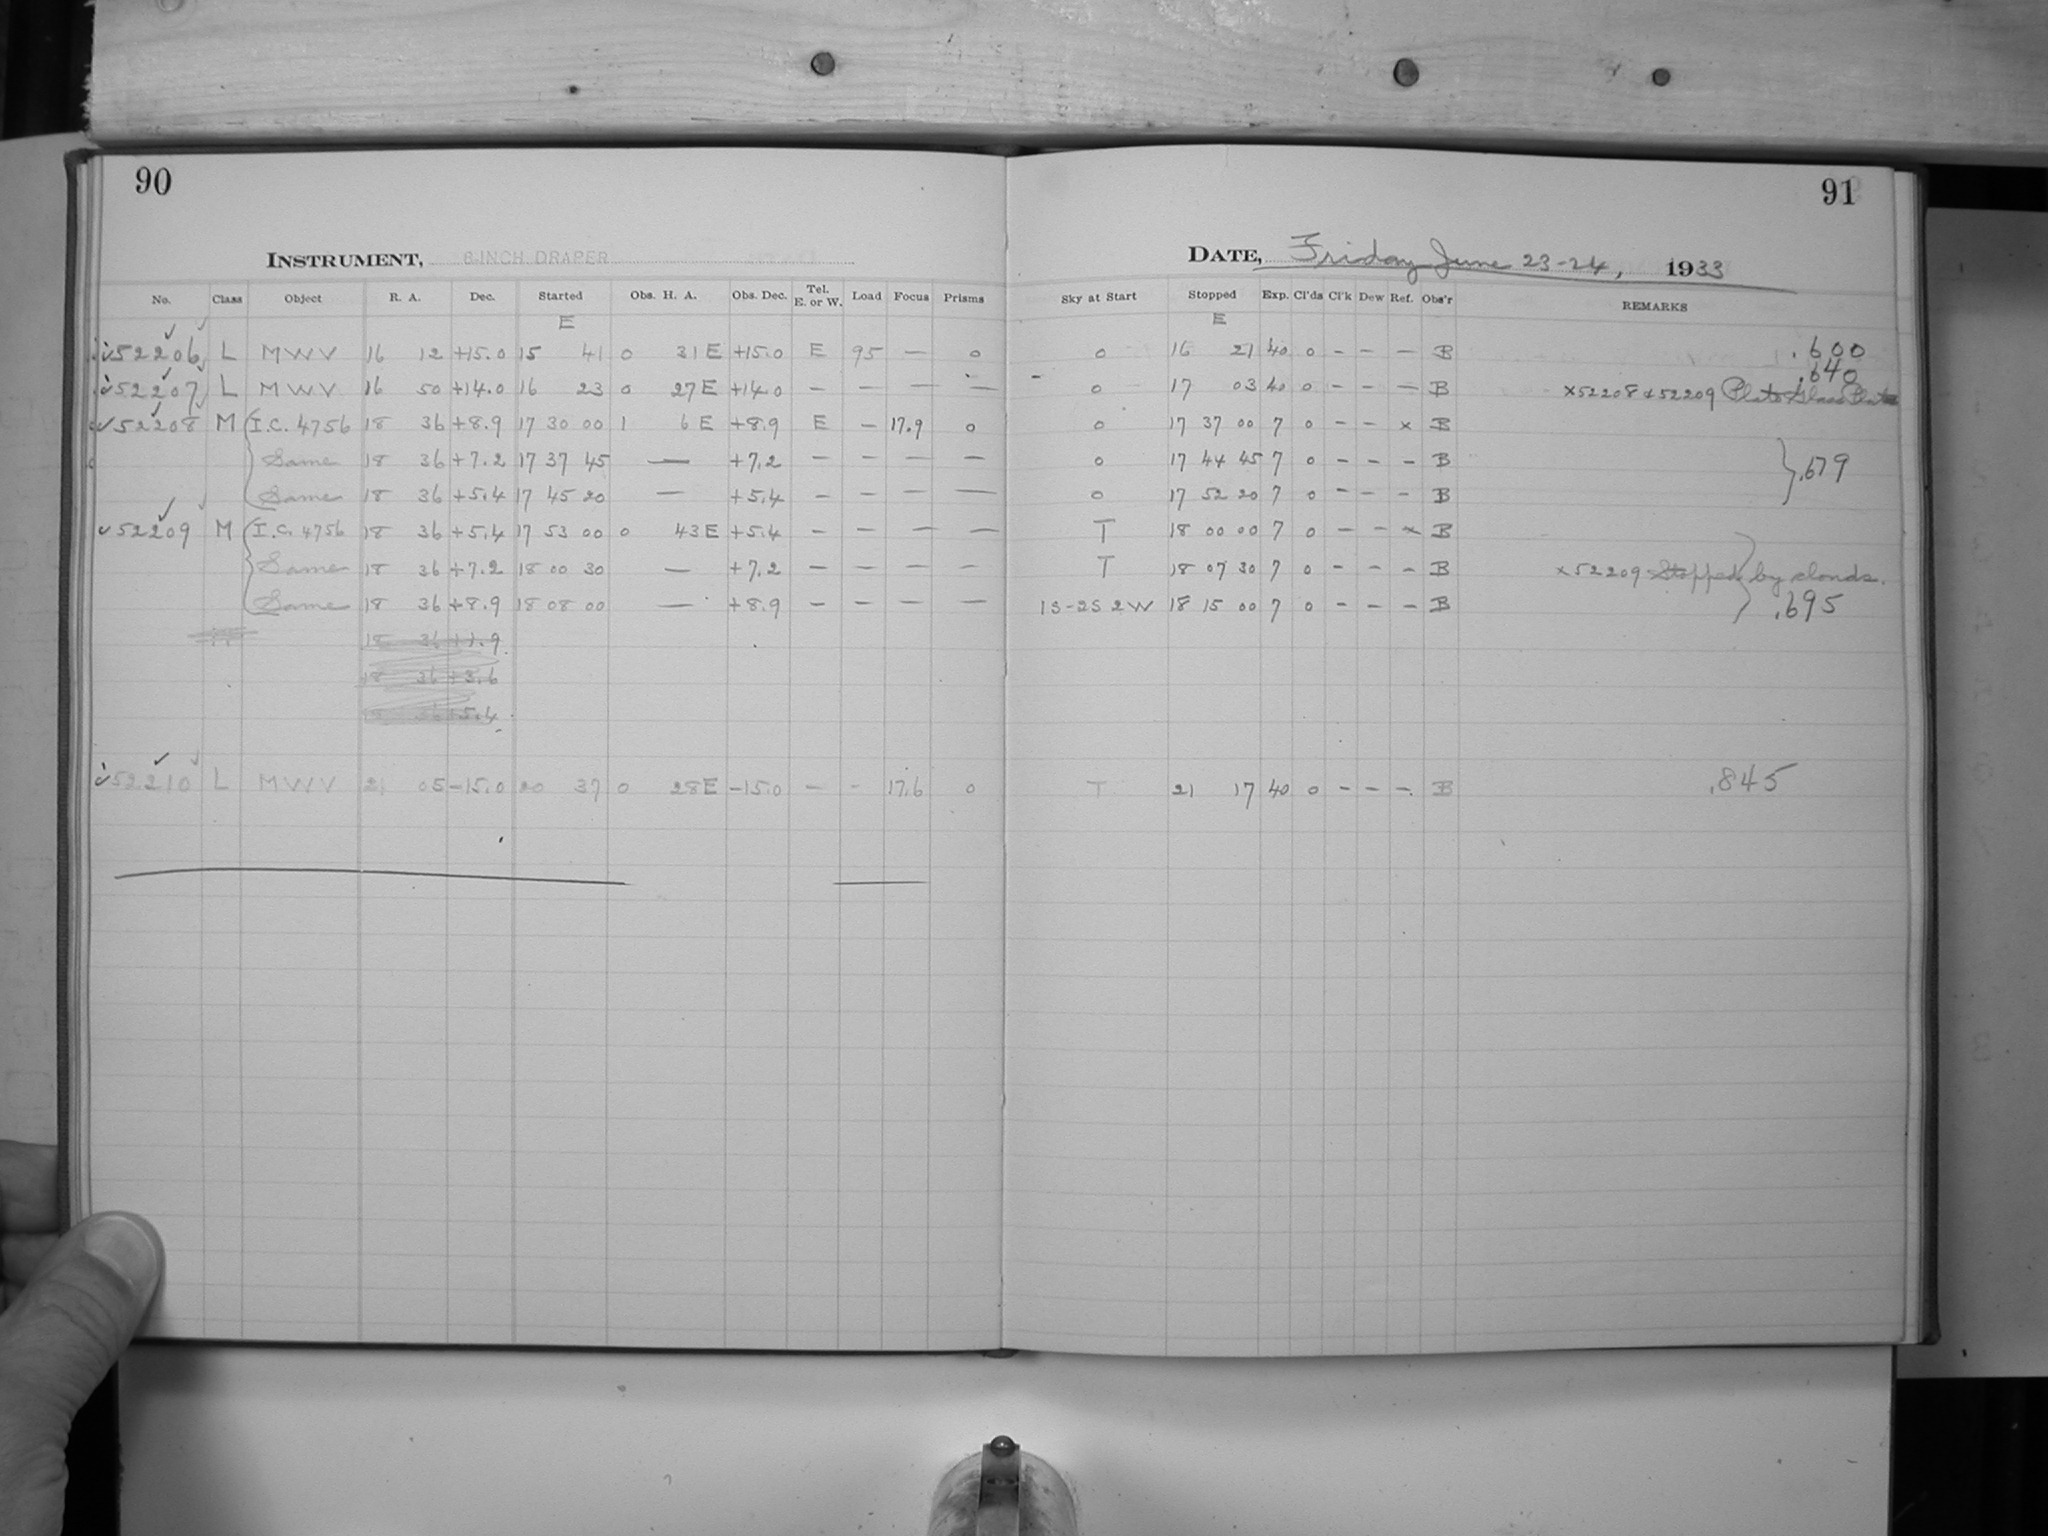 90
91
INSTRUMENT, 8 INCH DRAPER
DATE, Friday June 23-24, 1933
No. Class Object R. A. Dec. Started Obs. H. A. Obs. Dec. Tel. E. or W. Load Focus Prisms Sky at Start Stopped Exp. Cl'ds Cl'k Dew Ref. Obs'r REMARKS
E E
✓52206 L MWV 16 12 +15.0 15 41 0 31E +15.0 E 95 — 0 0 16 21 40 0 - - - B .600
✓52207 L MWV 16 50 +14.0 16 23 0 27E +14.0 — — — — 0 17 03 40 0 - - - B .640
x52208 + 52209 Plate Glass Plate
✓52208 M I.C. 4756 18 36 +8.9 17 30 00 1 6E +8.9 E — 17.9 0 0 17 37 00 7 0 - - x B
Same 18 36 +7.2 17 37 45 — +7.2 — — — — 0 17 44 45 7 0 - - - B .679
Same 18 36 +5.4 17 45 20 — +5.4 — — — — 0 17 52 20 7 0 - - - B
✓52209 M I.C. 4756 18 36 +5.4 17 53 00 0 43E +5.4 — — — — T 18 00 00 7 0 - - x B
Same 18 36 +7.2 18 00 30 — +7.2 — — — — T 18 07 30 7 0 - - - B x52209 Stopped by clouds.
Same 18 36 +8.9 18 08 00 — +8.9 — — — — 1S-2S 2W 18 15 00 7 0 - - - B .695
18 36 +1.9
18 36 +3.6
18 36 +5.4
✓52210 L MWV 21 05 -15.0 20 37 0 28E -15.0 — - 17.6 0 T 21 17 40 0 - - - B .845